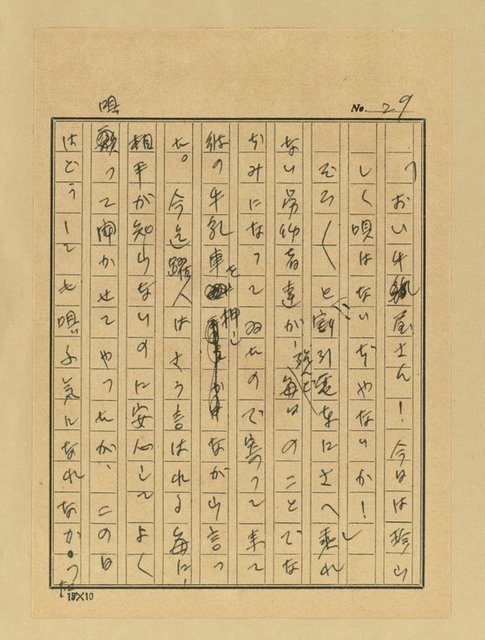 No. 29
「おい牛乳屋さん！今日は珍ら
しく唄はないぢやないか！」
ぞろ〱と割引電車にさへ乗れ
ない労働者達が、殆んど毎日のことでな
じみになつてゐたので寄つて来て
彼の牛乳車を押しながら言つ
た。今迄躍人はさう言はれる毎に、
相手が知らないのに安心してよく
唄つて聞かせてやつたが、この日
はどうしても唄ふ気になれなかつた
15×10